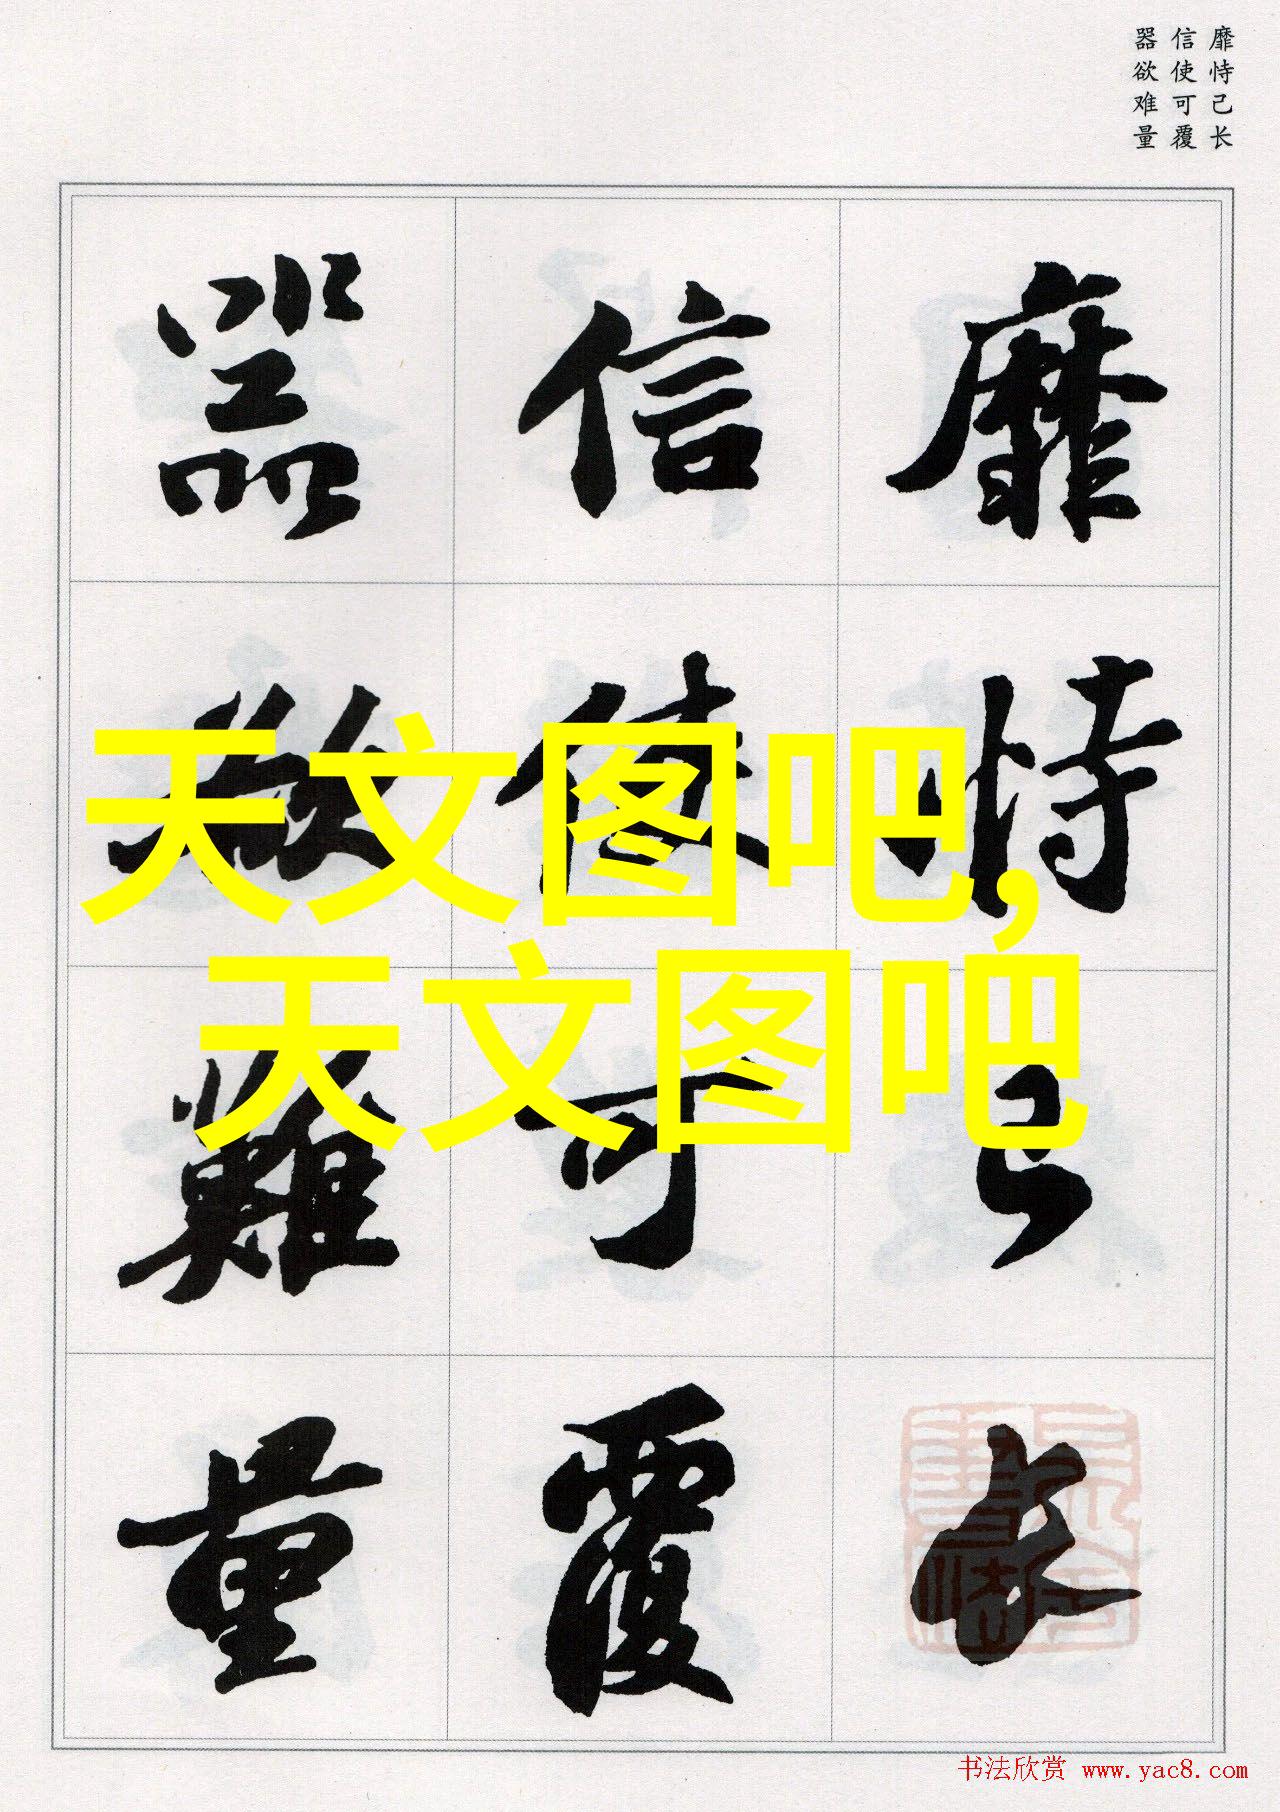 靡恃己长
信使可覆
器欲难量
靡恃己長
信使可覆
器欲難量
天文图吧,
天文图吧
书法欣赏 www.yac8.com